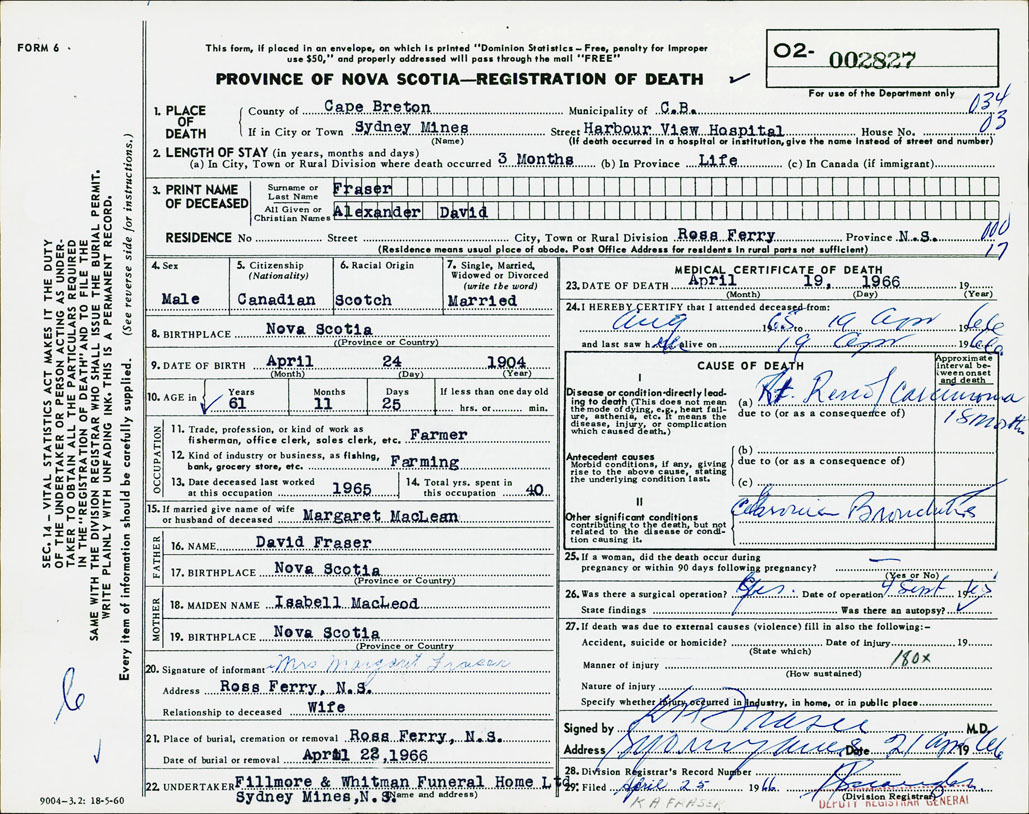 FORM 6
This form, if placed in an envelope, on which is printed "Dominion Statistics – Free, penalty for improper
use $50," and properly addressed will pass through the mail "FREE"
PROVINCE OF NOVA SCOTIA—REGISTRATION OF DEATH ✓
02- 002827
For use of the Department only
034
03
1. PLACE OF DEATH
County of Cape Breton Municipality of C.B.
If in City or Town Sydney Mines Street Harbour View Hospital House No.
(Name) (If death occurred in a hospital or institution, give the name instead of street and number)
2. LENGTH OF STAY (in years, months and days)
(a) In City, Town or Rural Division where death occurred 3 Months (b) In Province Life (c) In Canada (if immigrant)
3. PRINT NAME OF DECEASED
Surname or Last Name Fraser
All Given or Christian Names Alexander David
000
17
RESIDENCE No Street City, Town or Rural Division Ross Ferry Province N.S.
(Residence means usual place of abode. Post Office Address for residents in rural parts not sufficient)
4. Sex
Male
5. Citizenship
(Nationality)
Canadian
6. Racial Origin
Scotch
7. Single, Married,
Widowed or Divorced
(write the word)
Married
8. BIRTHPLACE Nova Scotia
((Province or Country)
9. DATE OF BIRTH April 24 1904
(Month) (Day) (Year)
10. AGE in Years Months Days If less than one day old
✓ 61 11 25 hrs. or min.
OCCUPATION
11. Trade, profession, or kind of work as
fisherman, office clerk, sales clerk, etc. Farmer
12. Kind of industry or business, as fishing,
bank, grocery store, etc. Farming
13. Date deceased last worked
at this occupation 1965
14. Total yrs. spent in
this occupation 40
15. If married give name of wife
or husband of deceased Margaret MacLean
FATHER
16. NAME David Fraser
17. BIRTHPLACE Nova Scotia
(Province or Country)
MOTHER
18. MAIDEN NAME Isabell MacLeod
19. BIRTHPLACE Nova Scotia
(Province or Country)
20. Signature of informant Mrs Margaret Fraser
Address Ross Ferry, N.S.
Relationship to deceased Wife
21. Place of burial, cremation or removal Ross Ferry, N.S.
Date of burial or removal April 22, 1966
22. UNDERTAKER Fillmore & Whitman Funeral Home Ltd.
Sydney Mines, N.S. (Name and address)
MEDICAL CERTIFICATE OF DEATH
23. DATE OF DEATH April 19, 1966 19
(Month) (Day) (Year)
24. I HEREBY CERTIFY that I attended deceased from:
Aug 1965 to 19 Apr 1966
and last saw h alive on 19 Apr 1966
CAUSE OF DEATH
Approximate
interval be-
tween onset
and death
I
Disease or condition directly lead-
ing to death (This does not mean
the mode of dying, e.g., heart fail-
ure, asthenia, etc. It means the
disease, injury, or complication
which caused death.)
(a) Rt. Renal Carcinoma
18 months
due to (or as a consequence of)
Antecedent causes
Morbid conditions, if any, giving
rise to the above cause, stating
the underlying condition last.
(b)
due to (or as a consequence of)
(c)
II
Other significant conditions
contributing to the death, but not
related to the disease or condi-
tion causing it.
Bronchitis
25. If a woman, did the death occur during
pregnancy or within 90 days following pregnancy? —
(Yes or No)
26. Was there a surgical operation? Yes. Date of operation 4 Sept 1965
State findings Was there an autopsy? ✓
27. If death was due to external causes (violence) fill in also the following:–
Accident, suicide or homicide? Date of injury 19
(State which)
Manner of injury 180x
(How sustained)
Nature of injury
Specify whether injury occurred in industry, in home, or in public place
Signed by Fraser M.D.
Address Date 21 Apr 1966
28. Division Registrar's Record Number
29. Filed April 25 1966
(Division Registrar)
K A FRASER
DEPUTY REGISTRAR GENERAL
SEC. 14 – VITAL STATISTICS ACT MAKES IT THE DUTY
OF THE UNDERTAKER OR PERSON ACTING AS UNDER-
TAKER TO OBTAIN ALL THE PARTICULARS REQUIRED
IN THE "REGISTRATION OF DEATH" AND TO FILE THE
SAME WITH THE DIVISION REGISTRAR WHO SHALL ISSUE THE BURIAL PERMIT.
WRITE PLAINLY WITH UNFADING INK. THIS IS A PERMANENT RECORD.
Every item of information should be carefully supplied. (See reverse side for instructions.)
6
✓
9004–3.2: 18-5-60